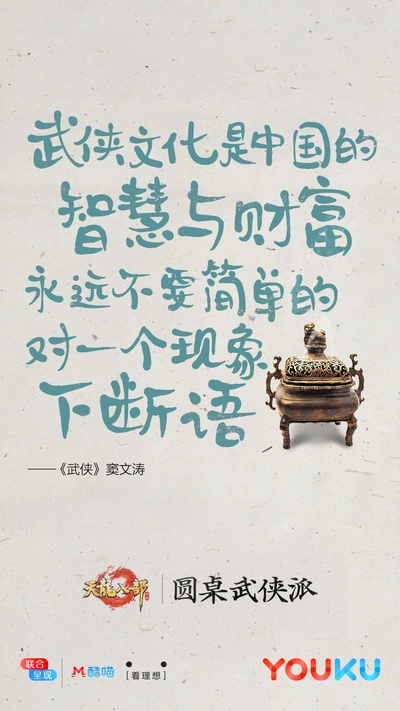 武侠文化是中国的
智慧与财富
永远不要简单的
对一个现象
下断语
——《武侠》窦文涛
天龙八部 圆桌武侠派
联合
呈现
酷喵
[看理想]
YOUKU